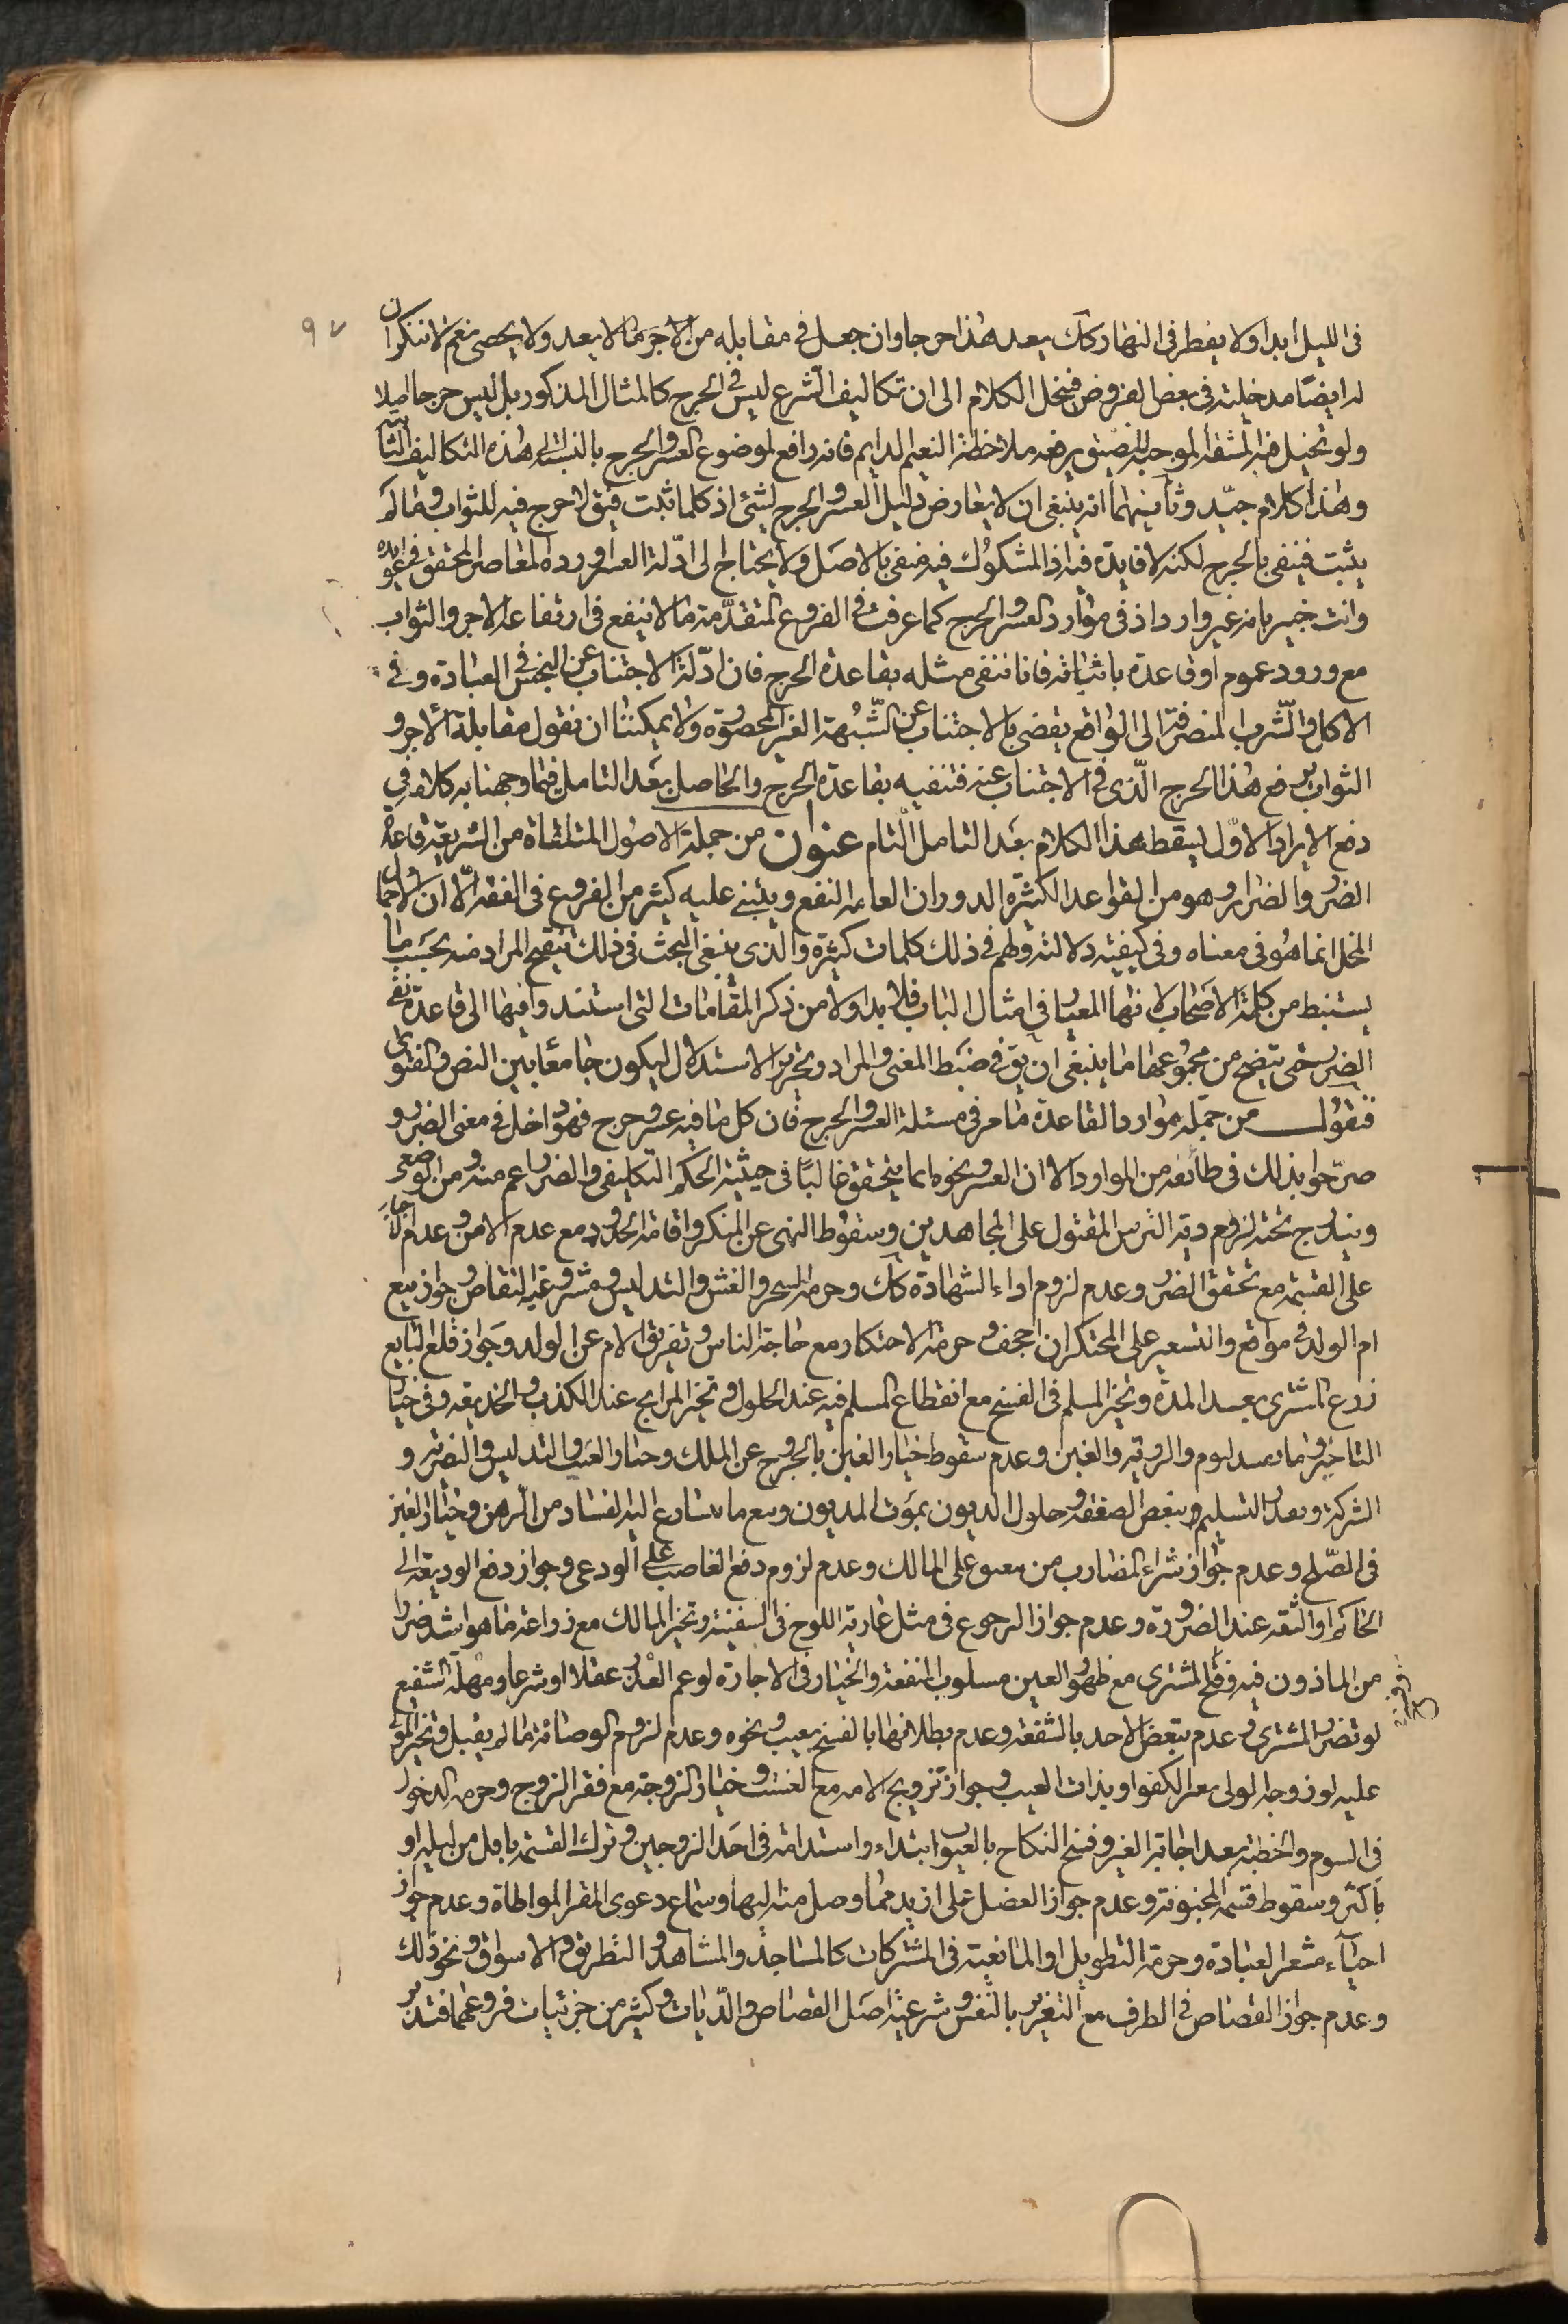 ٩٧
فى الليل ابدا ولا يفطر فى النهار كك يعد هذا حرجا وان جعل فى مقابله من الاجر ما لا يعد ولا يحصى نعم لا ننكر ان
له ايضا مدخلية فى بعض الفروض فينحل الكلام الى ان تكاليف الشرع ليس فى الحرج كالمثال المذكور بل ليس حرجا اصلا
ولو تخيل فيه المشقة الموجبة للضيق يرفعه ملاحظة النعيم الدايم فانه رافع لموضوع العسر والحرج بالنسبة الى هذه التكاليف الثابتة
وهذا كلام جيّد وثانيهما انه ينبغى ان لا يعارض دليل العسر والحرج لشئ اذ كلما ثبت فيق لا حرج فيه للثواب وما لم
يثبت فينفى بالحرج لكنه لا فايدة فيه اذ المشكوك فيه منفى بالاصل ولا يحتاج الى ادّلة العسر اورده المعاصر المحقق فى عوايده
وانت خبير بانه غير وارد اذ فى موارد العسر والحرج كما عرفت فى الفروع المتقدّمة ما لا ينفع فى ارتفاعه الاجر والثواب
مع ورود عموم او قاعدة باثباته فانا ننفى مثله بقاعدة الحرج فان ادّلة الاجتناب عن النجس فى العبادة وفى
الاكل والشّرب المنصرفة الى الواقع يقضى بالاجتناب عن الشّبهة الغير المحصورة ولا يمكننا ان نقول مقابلة الاجر و
الثواب يرفع هذا الحرج الّذى فى الاجتناب عنه فتنفيه بقاعدة الحرج والحاصل بعد التامل فيما وجهنا به كلامه فى
دفع الايراد الاوّل ليسقط هذا الكلام بعد التامل التام عنوان من جملة الاصول المتلقاة من الشريعة قاعدة
الضرر والضرار وهو من القواعد الكثيرة الدوران العامة النفع ويبتنى عليه كثير من الفروع فى الفقه الّا ان الاجمال
المخل انما هو فى معناه وفى كيفية دلالته ولهم فى ذلك كلمات كثيرة والّذى ينبغى البحث فى ذلك تنقيح المراد منه بحسب ما
يستنبط من كلمة الاصحاب لانها المعيار فى امثال الباب فلا بد اولا من ذكر المقامات التى استندوا فيها الى قاعدة نفى
الضرر حتى يتضح من مجموعها ما ينبغى ان يق فى ضبط المعنى والمراد وتحرير الاستدلال ليكون جامعا بين النص والفتوى
فنقول من جملة موارد القاعدة ما مر فى مسئلة العسر والحرج فان كل ما فيه عسر وحرج فهو داخل فى معنى الضرر و
صرّحوا بذلك فى طائفة من الموارد الا ان العسر ونحوه انما يتحقق غالبًا فى حيثية الحكم التكليفى والضرر اعم منه ومن الوضعى
ويندرج تحته لزوم دية الترس المقتول على المجاهدين وسقوط النهى عن المنكر واقامة الحدود مع عدم الامن وعدم الاجبار
على القسمة مع تحقق الضرر وعدم لزوم اداء الشهادة كك وحرمة السحر والغش والتدليس ومشروعية التقاص وجواز بيع
ام الولد فى مواقع والتسعير على المحتكر ان اجحف وحرمة الاحتكار مع حاجة الناس وتفريق الام عن الولد وجواز قلع البايع
زرع المشترى بعد المدة وتخير المسلم فى الفسخ مع انقطاع المسلم فيه عند الحلول وتخير المرابح عند الكذب والخديعة وفى خيار
التاخير وما يفسد ليوم والروية والغبن وعدم سقوط خيار الغبن بالخروج عن الملك وخيار العيب والتدليس والتصرية و
الشركة وتعذر التسليم وتبعض الصفقة وحلول الديون بموت المديون وبيع ما يتسارع اليه الفساد من الرهن وخيار الغبن
فى الصّلح وعدم جواز شراء المضارب من ينعتق على المالك وعدم لزوم دفع الغاصب على الودعى وجواز دفع الوديعة الى
الحاكم او الثقة عند الضرورة وعدم جواز الرجوع فى مثل عارية اللوح فى السفينة وتخير المالك مع زراعة ما هو اشد ضررا
من الماذون فيه وفى المشترى مع ظهور العين مسلوب المنفعة والخيار فى الاجارة لو عم العذر عقلا او شرعا ومهلة الشفيع
لو تضرر المشترى وعدم تبعض الاحد بالشفعة وعدم بطلانها بالفسخ بعيب ونحوه وعدم لزوم الوصاية ما لم يقبل وتخير المولى
عليه لو زوجه الولى بغير الكفو او بذات العيب وجواز تزويج الامة مع العنت وخيار الزوجة مع فقر الزوج وحرمة الدخول
فى السوم والخطبة بعد اجابة الغير وفسخ النكاح بالعيوب ابتداء واستدامة فى احد الزوجين وترك القسمة باقل من ليلة او
باكثر وسقوط قسمة المجنونة وعدم جواز العضل على ازيد مما وصل منه اليها وسماع دعوى المقر المواطاة وعدم جواز
احياء مشعر العبادة وحرمة التطويل او المانعية فى المشتركات كالمساجد والمشاهد والطريق والاسواق ونحو ذلك
وعدم جواز القصاص فى الطرف مع التغرير بالنفس وشرعية اصل القصاص والدّيات وكثير من جزئيات فروعهما فتدبر